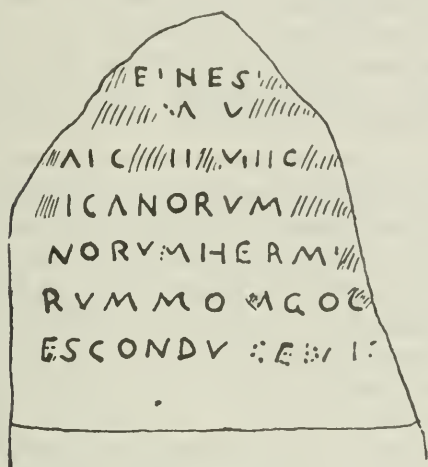 EINES
ΛV
ΛIC II VIIIC
ICΛNORVM
NORVMHERM
RVMMO MGOC
ESCONDV